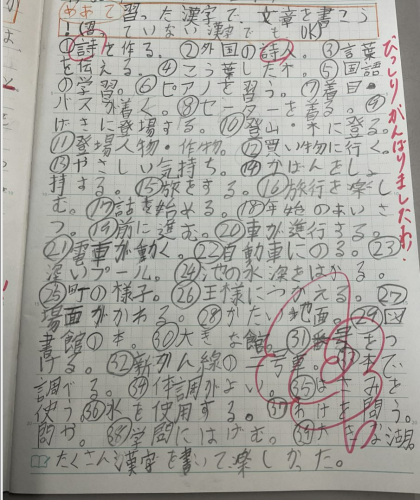 めあて 習った漢字で、文章を書こう
習っていない漢字でもOK!
①詩を作る。②外国の詩人。③言葉
を伝える。④こう葉した木。⑤国語
の学習。⑥ピアノを習う。⑦着目・
バスが着く。⑧セーターを着る。⑨
けきに登場する。⑩登山・木に登る。
⑪登場人物・作物。⑫買い物に行く。
⑬やさしい気持ち。⑭かばんをしょ
持する。⑮旅をする。⑯旅行を楽し
む。⑰話を始める。⑱年始のあいさ
つ。⑲前に進む。⑳車が進行する。
㉑電車が動く。㉒自動車にのる。㉓
深いプール。㉔池の水深をはかる。
㉕町の様子。㉖王様につかえる。㉗
場面がかわる。㉘かたい地面。㉙図
書館の本。㉚大きな館。㉛番号をつ
ける。㉜新かん線の一号車。㉝本で
調べる。㉞体調がよい。㉟はさみを
使う。㊱水を使用する。㊲わけを問う。
問か。㊳学問にはげむ。㊴かな湖。
たくさん漢字を書いて楽しかった。
びっしりがんばりましたね。